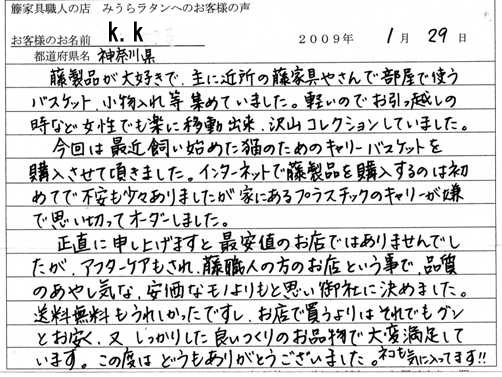 藤家具職人の店 みうらラタンへのお客様の声
お客様のお名前 k.k 2009年 1月 29日
都道府県名 神奈川県
藤製品が大好きで、主に近所の藤家具やさんで部屋で使う
バスケット、小物入れ等集めていました。軽いのでお引っ越しの
時など女性でも楽に移動出来、沢山コレクションしていました。
今回は最近飼い始めた猫のためのキャリーバスケットを
購入させて頂きました。インターネットで藤製品を購入するのは初
めてで不安も少々ありましたが家にあるプラスチックのキャリーが嫌
で思い切ってオーダーしました。
正直に申し上げますと最安値のお店ではありませんでし
たが、アフターケアもされ、藤職人の方のお店という事で、品質
のあやし気な、安価なモノよりもと思い御社に決めました。
送料無料もうれしかったですし、お店で買うよりはそれでもグン
とお安く、又、しっかりした良いつくりのお品物で大変満足して
います。この度はどうもありがとうございました。ネコも気に入ってます!!